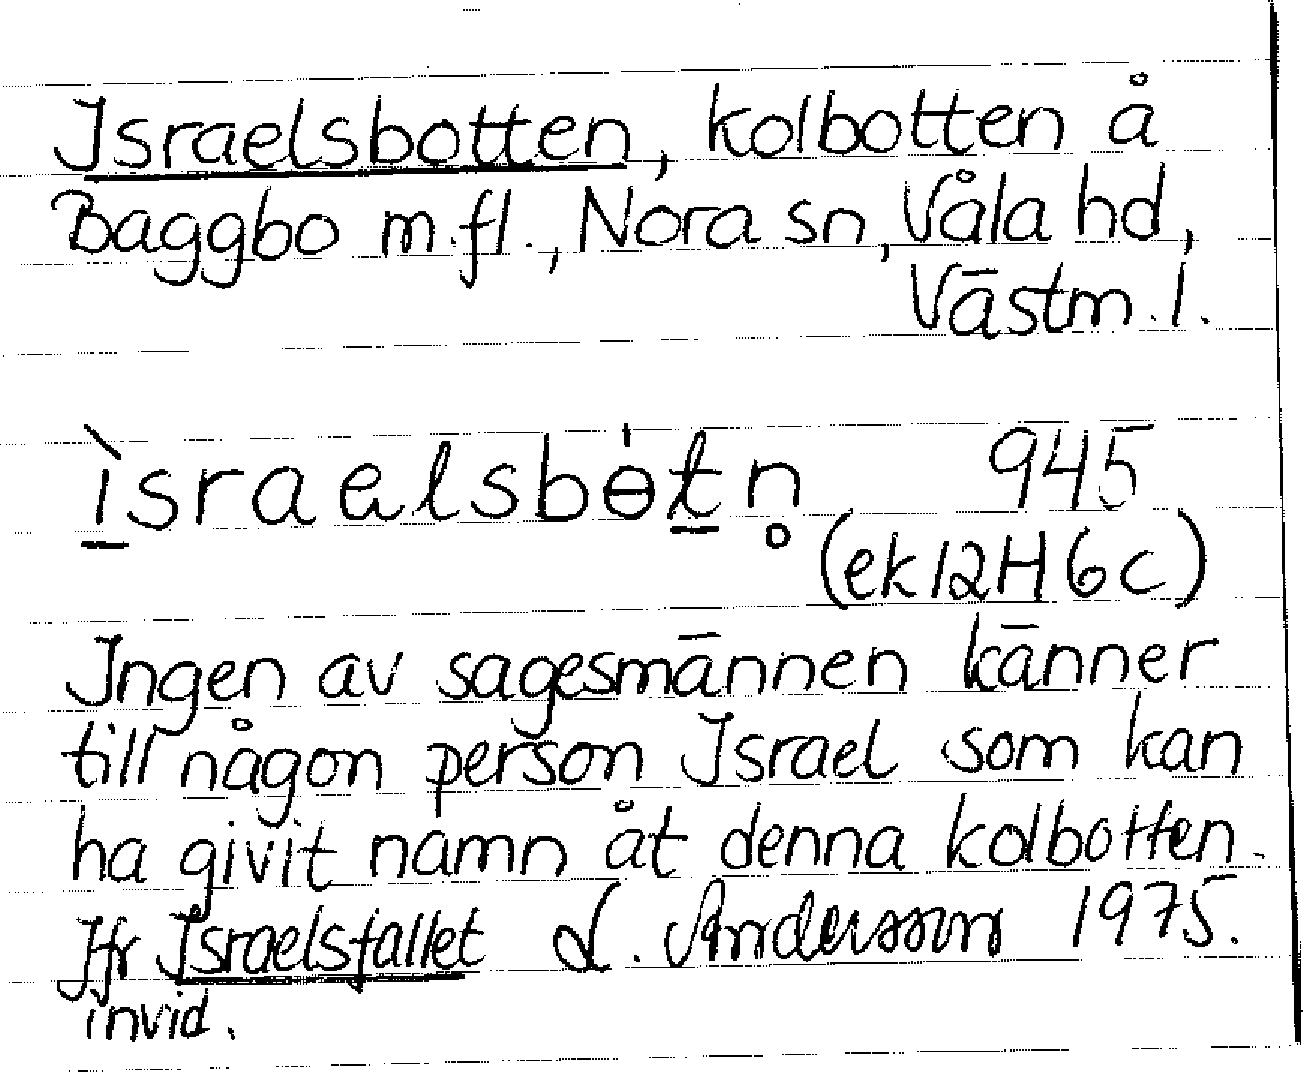 Israelsbotten, kolbotten å
Baggbo m.fl., Nora sn, Våla hd,
Västm.l.
ìsraelsbɵ̍tn̥ 945
(ek 12H 6c)
Ingen av sagesmännen känner
till någon person Israel som kan
ha givit namn åt denna kolbotten.
Jfr Israelsfallet L. Andersson 1975.
invid.